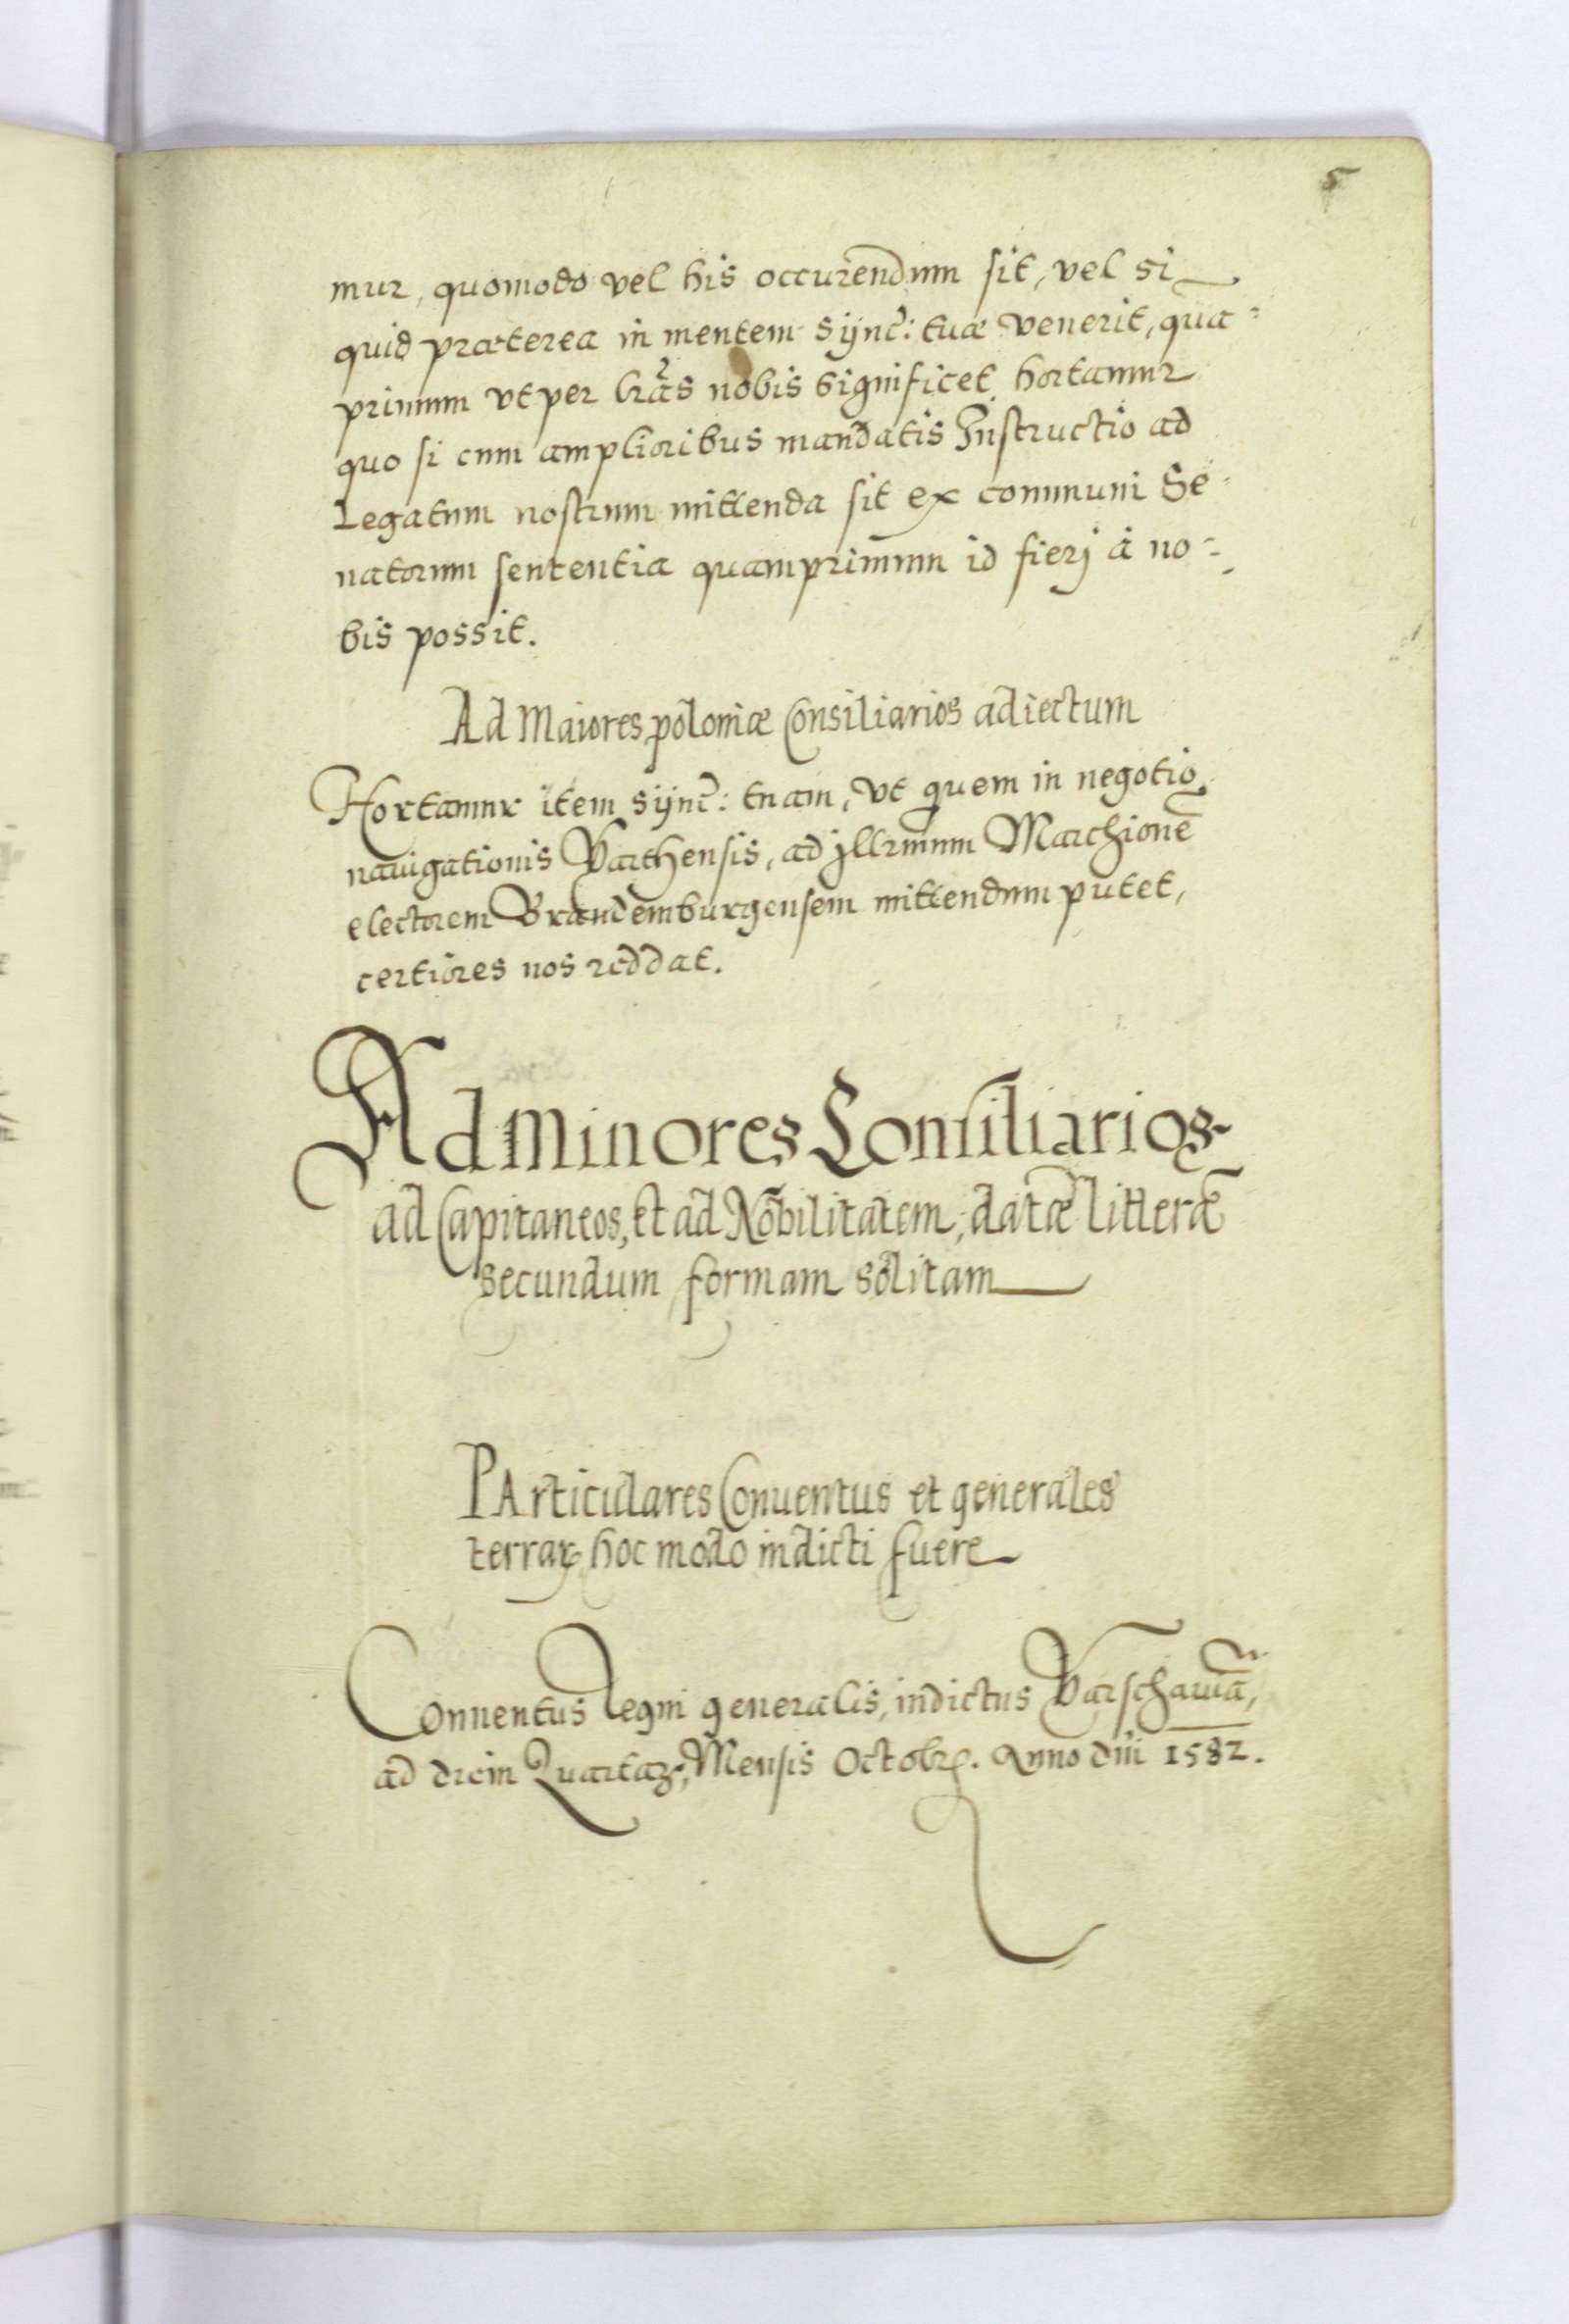 5
mur, quomodo vel his occurendum sit, vel si
quid præterea in mentem synć: tuæ venerit, qua=
primum vt per lras nobis significet hortamur
quo si cum amplioribus mandatis Instructio ad
Legatum nostrum mittenda sit ex communi Se=
natorum sententia quamprimum id fierj à no=
bis possit.
Ad Maiores poloniæ Consiliarios adiectum
Hortamur item synć: tuam, vt quem in negotio
nauigationis Varthensis, ad jllrmum Marchionē
electorem Brandemburgensem mittendum putet,
certiores nos reddat.
Ad Minores Consiliarios
ad Capitaneos, et ad Nobilitatem, datæ litteræ
secundum formam solitam
PArticulares Conuentus et generales
terrarꝝ hoc modo indicti fuere
Conuentus Regni generalis, indictus Varschauiā,
ad diem Quartaꝫ, Mensis Octobrꝭ. Anno dni 1582.